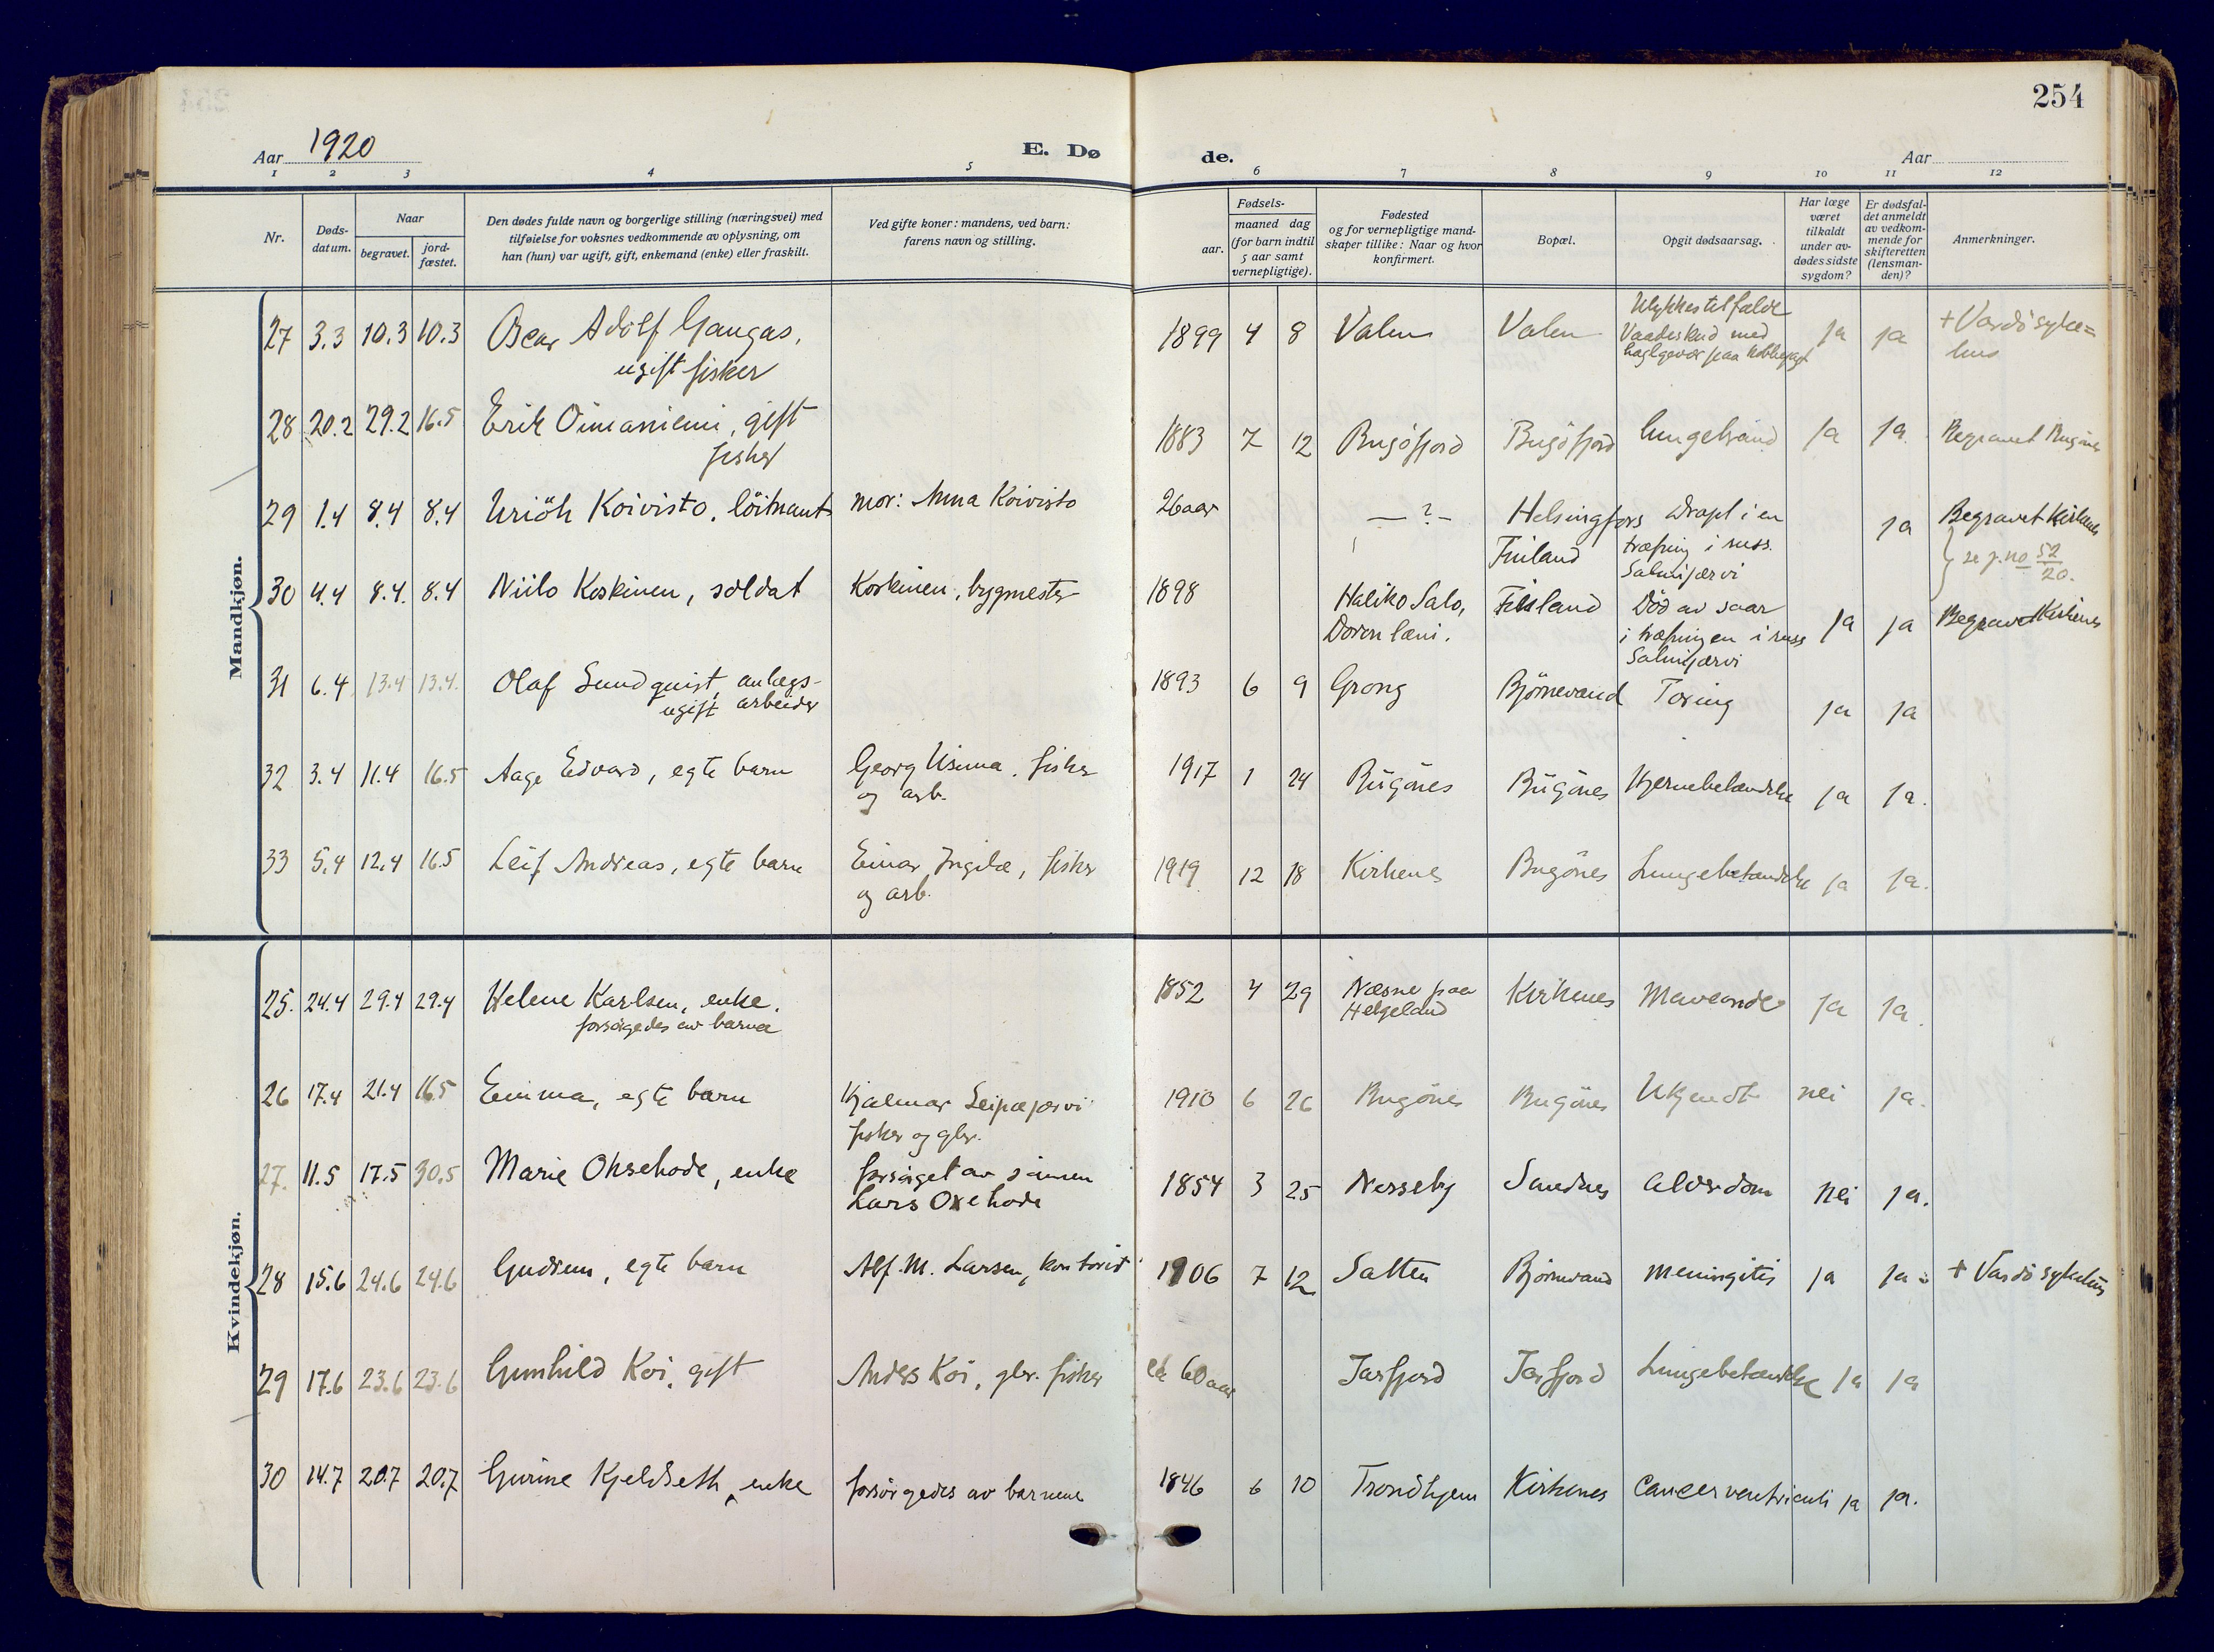 254
Aar 1920
E. Dø de.
Aar
1 2 3 4 5 6 7 8 9 10 11 12
Nr.
Døds-
datum.
Naar
begravet.
jord-
fæstet.
Den dødes fulde navn og borgerlige stilling (næringsvei) med
tilføielse for voksnes vedkommende av oplysning, om
han (hun) var ugift, gift, enkemand (enke) eller fraskilt.
Ved gifte koner: mandens, ved barn:
farens navn og stilling.
Fødsels-
aar.
maaned dag
(for barn indtil
5 aar samt
vernepligtige).
Fødested
og for vernepligtige mand-
skaper tillike: Naar og hvor
konfirmert.
Bopæl.
Opgit dødsaarsag.
Har læge
været
tilkaldt
under av-
dødes sidste
sygdom?
Er dødsfal-
det anmeldt
av vedkom-
mende for
skifteretten
(lensman-
den)?
Anmerkninger.
Mandkjøn.
27 3.3 10.3 10.3 Oscar Adolf Gangas,
ugift fisker
1899 4 8 Valen Valen
Ulykkestilfælde
Vaadeskud med
haglgevær paa kobbejagt
ja ja
+ Vardö syke=
hus
28 20.2 29.2 16.5 Erik Oimaniemi, gift
fisker
1883 7 12 Bugöfjord Bugöfjord lungebrand ja ja Begravet Bugönes
29 1.4 8.4 8.4 Uriöh Koivisto, löitnant mor: Anna Koivisto
26 aar — ? — Helsingfors
Finland
Dræpt i en
træfning i russ.
Salmijærvi
ja Begravet Kirkenes
se j.no 52/20.
30 4.4 8.4. 8.4 Niilo Koskinen, soldat Koskinen, bygmester
1898 Haliko Salo, Finland
Död av saar
i træfningen i russ
Salmijærvi
ja ja Begravet Kirkenes
31 6.4 13.4 13.4. Olaf Sundquist, anlegs-
ugift arbeider
1893 6 9 Grong Björnevand Tæring ja ja
32 3.4 11.4 16.5 Aage Edvard, egte barn Georg Usima, fisker
og arb.
1917 1 24 Bugönes Bugönes Hjernebetændelse ja ja.
33 5.4 12.4 16.5 Leif Andreas, egte barn Einar Ingilæ, fisker
og arb.
1919 12 18 Kirkenes Bugönes Lungebetændelse ja ja.
Kvindekjøn.
25. 24.4 29.4 29.4 Helene Karlsen, enke.
forsörgedes av barna
1852 4 29 Næsne paa
Helgeland
Kirkenes Maveonde ja ja.
26 17.4 21.4 16.5 Emma, egte barn Hjalmar Leipæjærvi
fisker og gbr.
1910 6 26 Bugönes Bugönes Ukjendt nei ja.
27. 11.5 17.5 30.5 Marie Oksehode, enke forsörget av sönnen
Lars Oxehode
1854 3 25 Nesseby Sandnes alderdom nei ja.
28 15.6 24.6 24.6 Gudrun, egte barn Alf. M. Larsen, kontorist
1906 7 12 Salten Björnevand meningitis ja ja + Vardö sykehus
29 17.6 23.6 23.6 Gunhild Koi, gift Anders Koi, gbr. fisker
ca 60 aar Jarfjord Jarfjord Lungebetændelse ja ja
30 14.7 20.7 20.7 Gurine Kjeldseth, enke forsörgedes av barnene
1846 6 10 Trondhjem Kirkenes Cancer ventriculi ja ja.